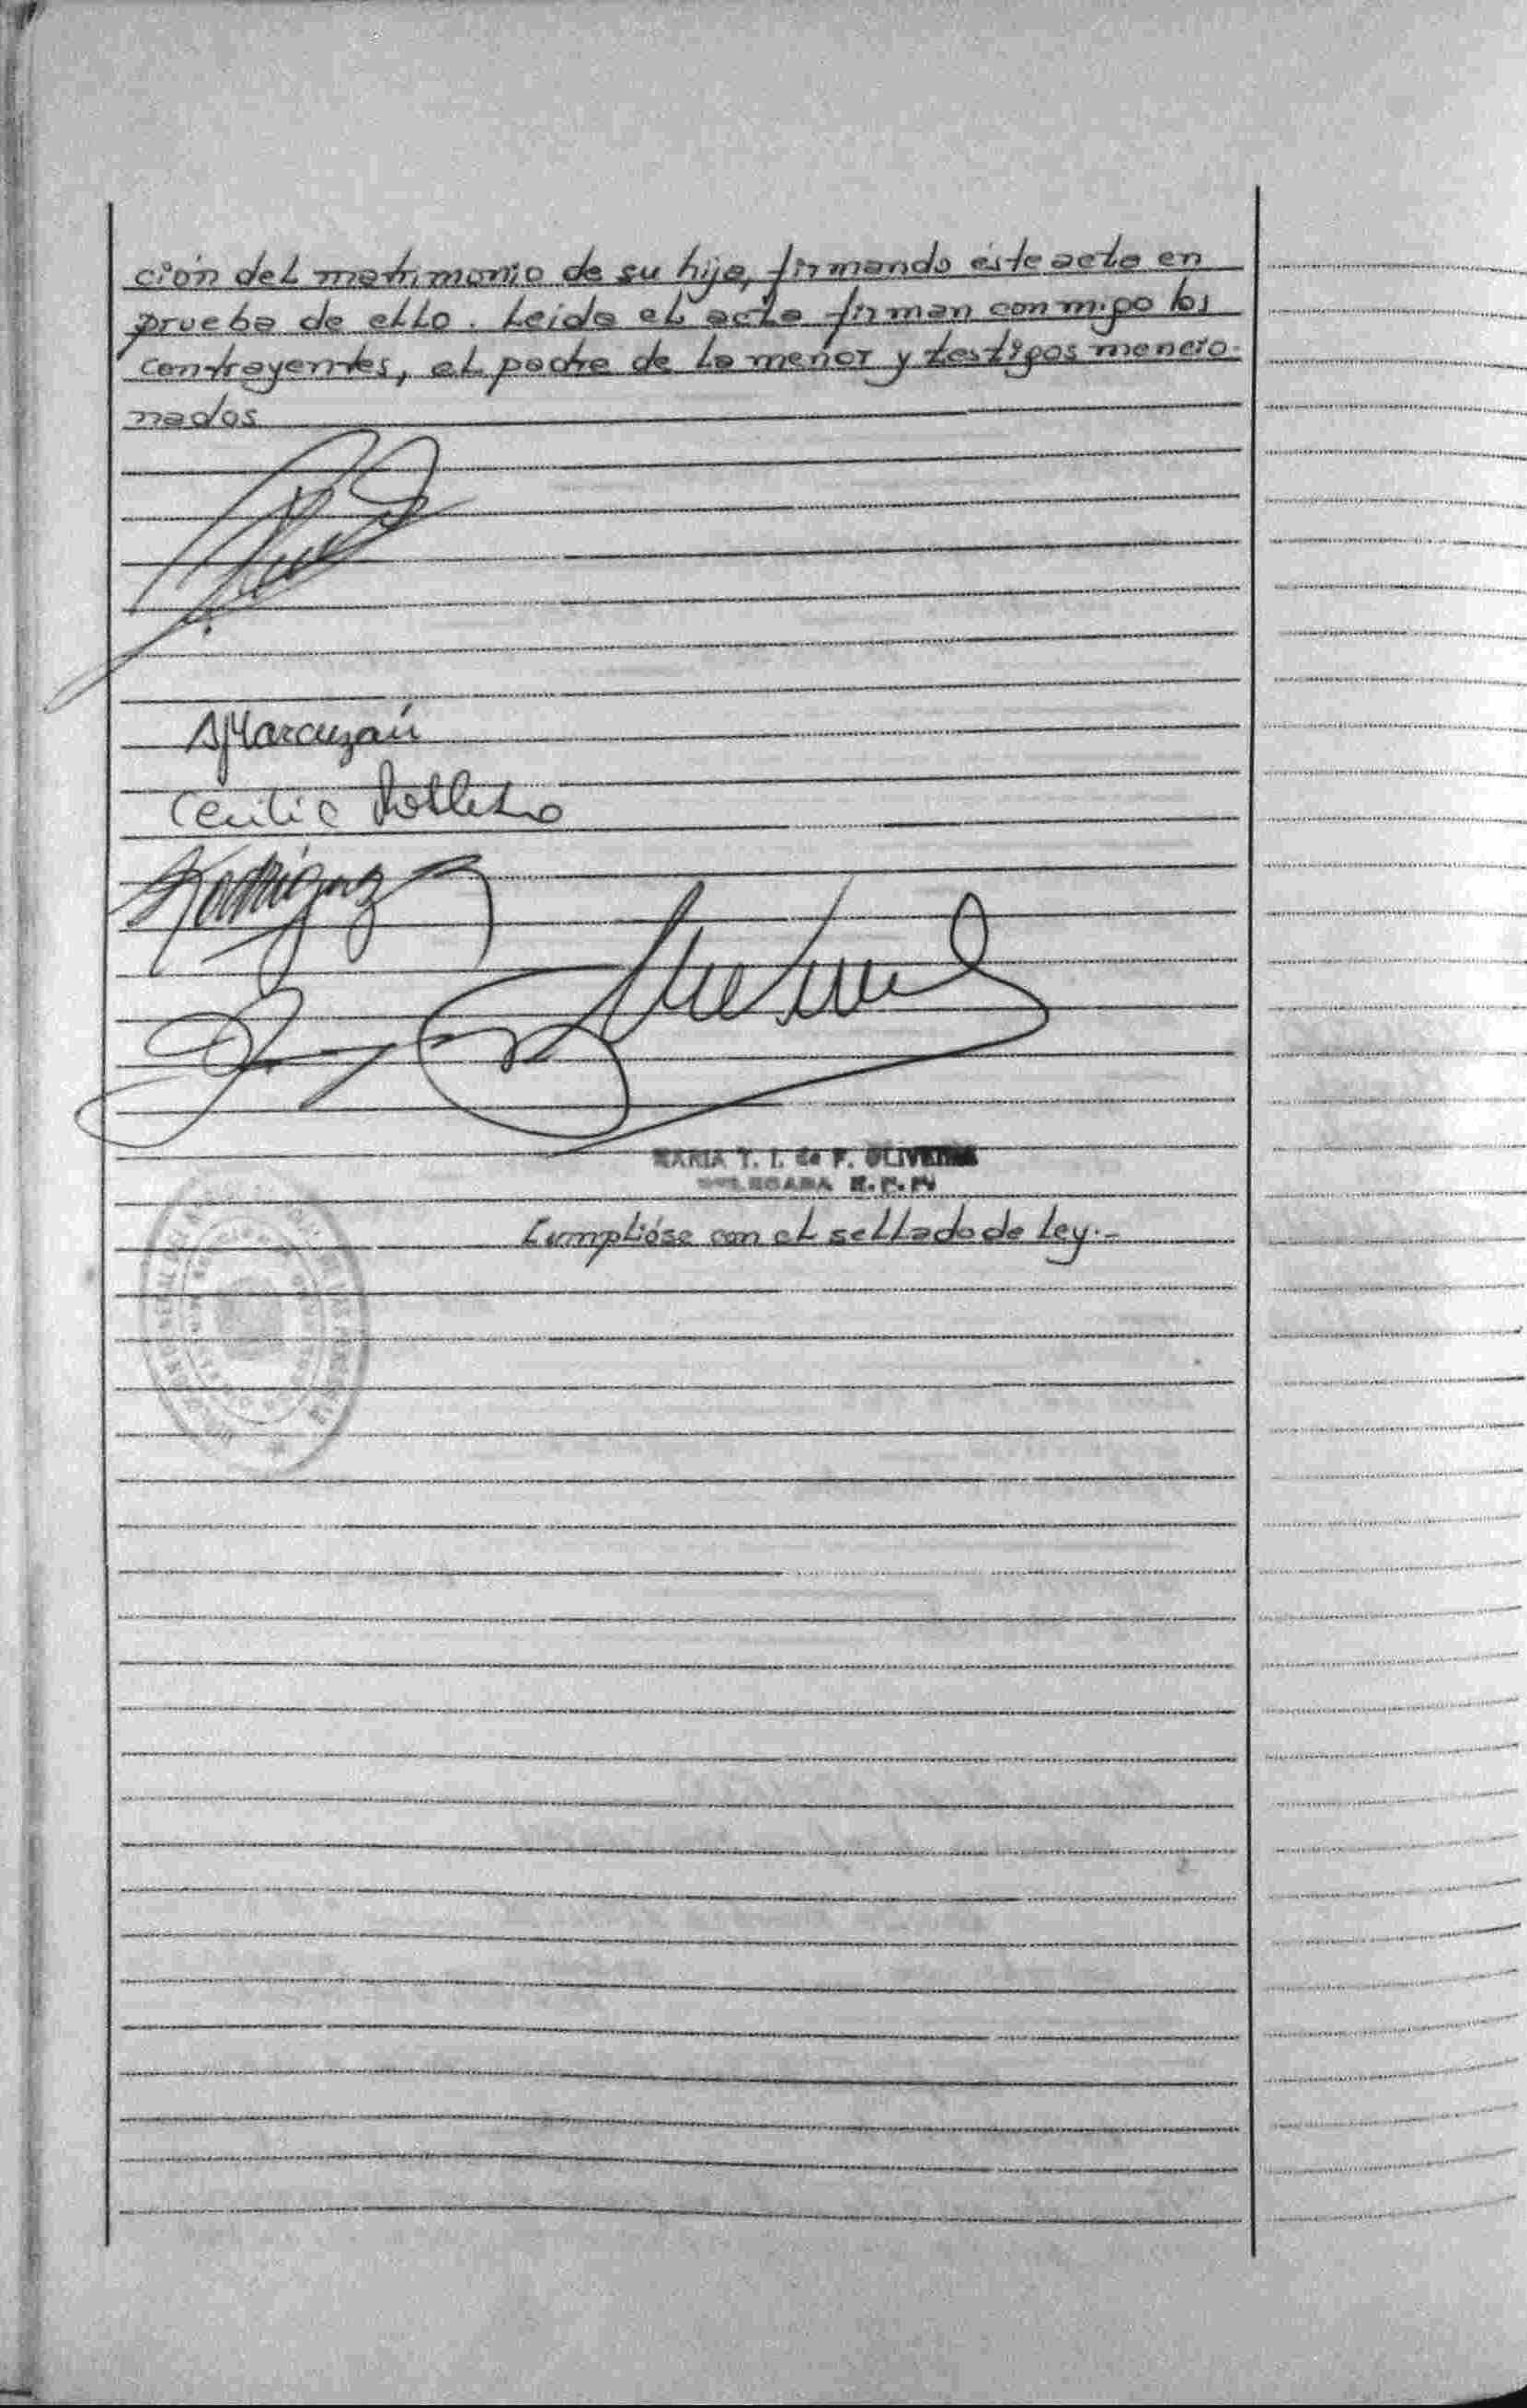 ción del matrimonio de su hija, firmando éste acta en
prueba de ello. Leida el acta firman conmigo los
contrayentes, el padre de la menor y testigos mencio-
nados
Cecilia
Rodriguez
MARIA T. I. de P. OLIVEIRA
DELEGADA
Cumplióse con el sellado de ley.-